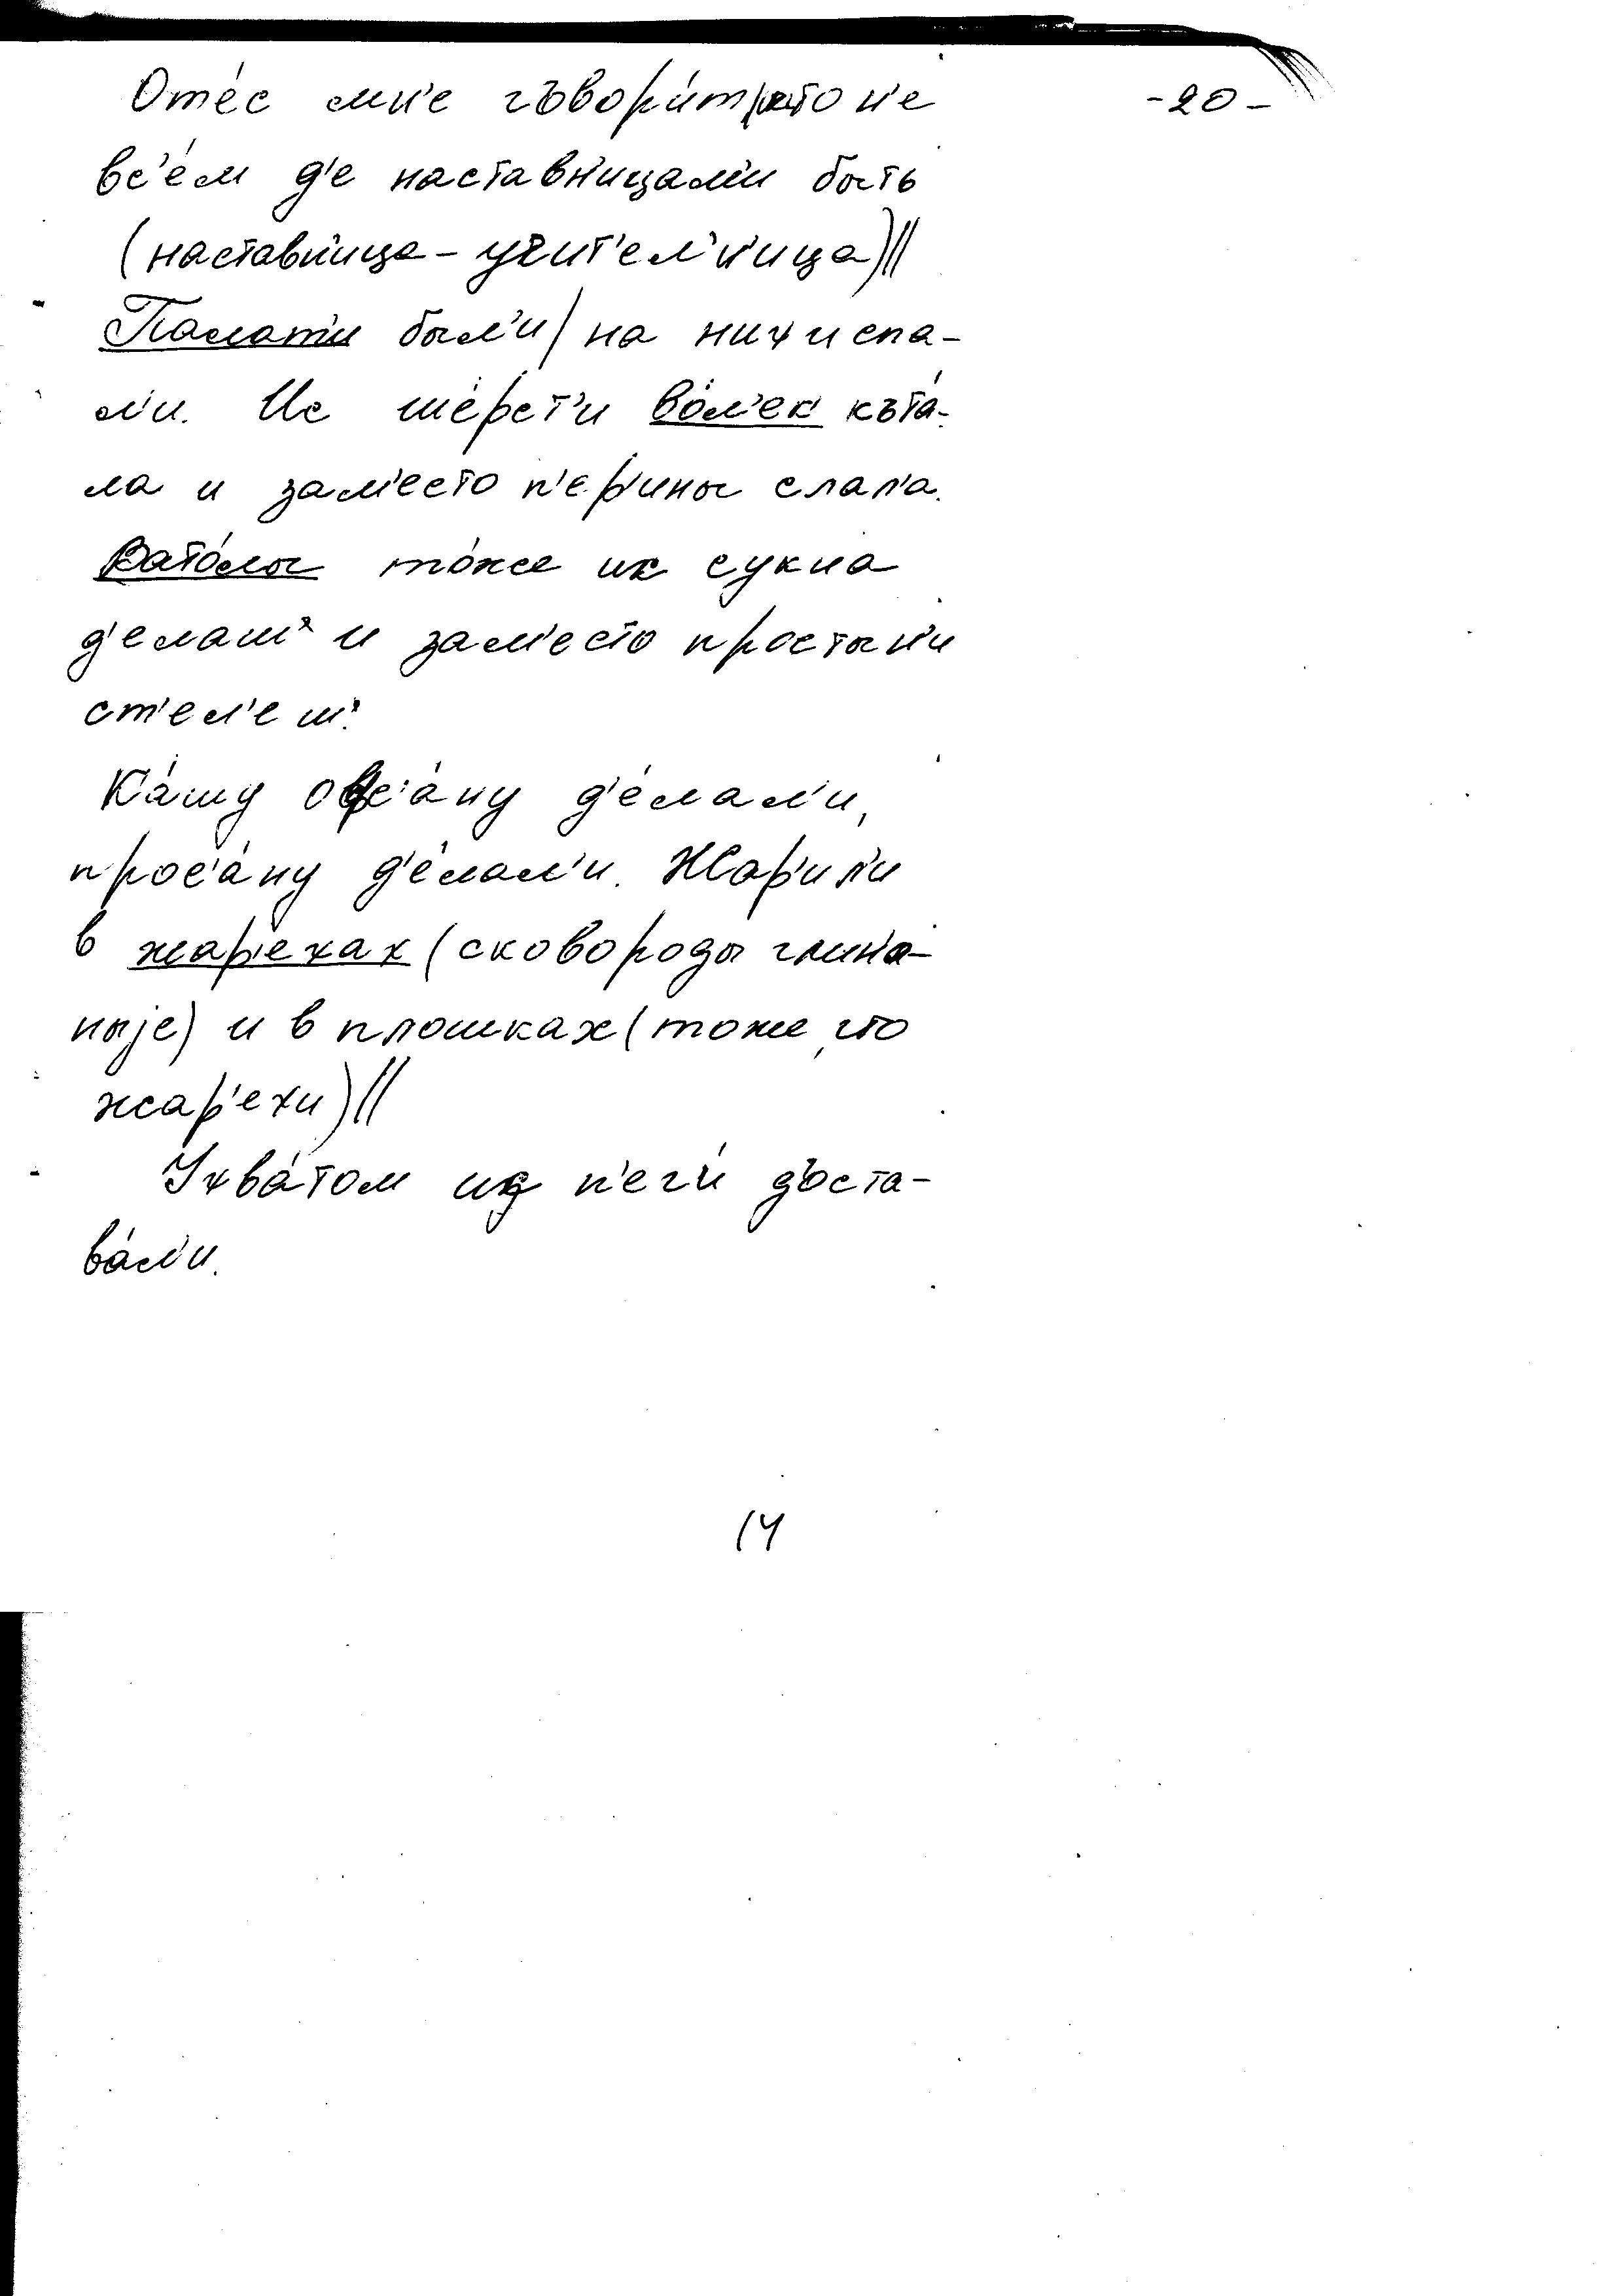 Оте́с мн'е гъвори́т|што н'е
-20-
вс'е́м д'е наставн'ицам'и быть
(наставн'ица - учит'ел'н'ица)||
Палат'и был'и/ на них и спа-
л'и. Ис ше́рст'и во́л'ек къта́-
ла и зам'есто п'ер'ины слала.
Вато́лы то́же ис сукна
д'елаш' и зам'есто простын'и
ст'ел'еш'.
Ка́шу овс'а́ну д'е́лал'и,
прос'а́ну д'е́лал'и. Жар'ил'и
в жар'ехах (сковороды глин'а-
ныjе) и в плошках (тоже, что
жар'ехи)||
Ухва́том из п'ечи́ дъста-
ва́л'и.
14